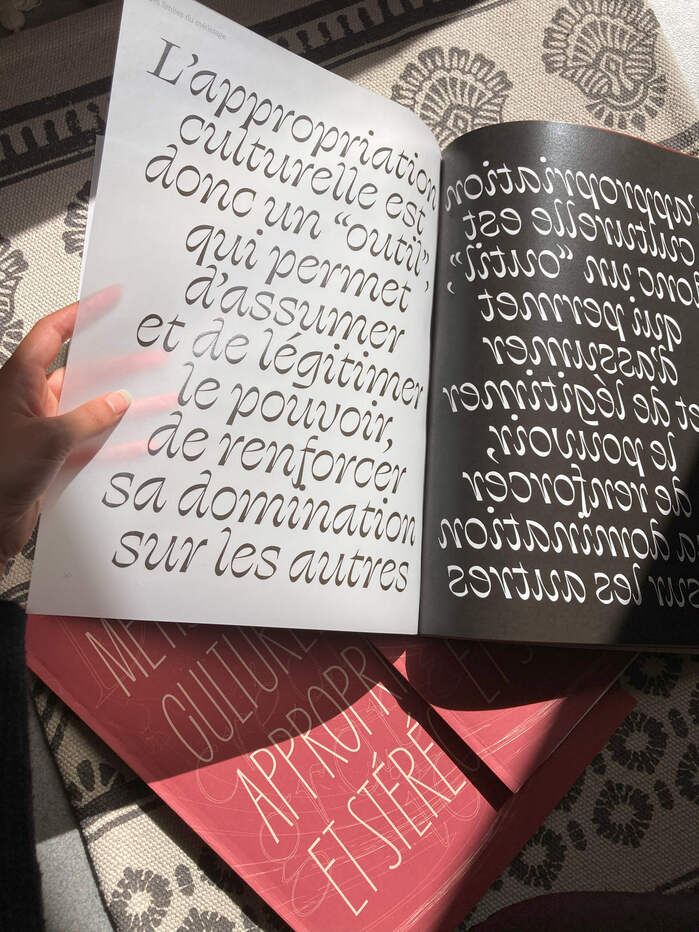 Les limites du métissage
L'appropriation
culturelle est
donc un “outil”,
qui permet
d'assumer
et de légitimer
le pouvoir,
de renforcer
sa domination
sur les autres
appropriation
culturelle est
donc un “outil”,
qui permet
d'assumer
et de légitimer
le pouvoir,
de renforcer
sa domination
sur les autres
CULTURE
APPROPR
ET STÉRÉ